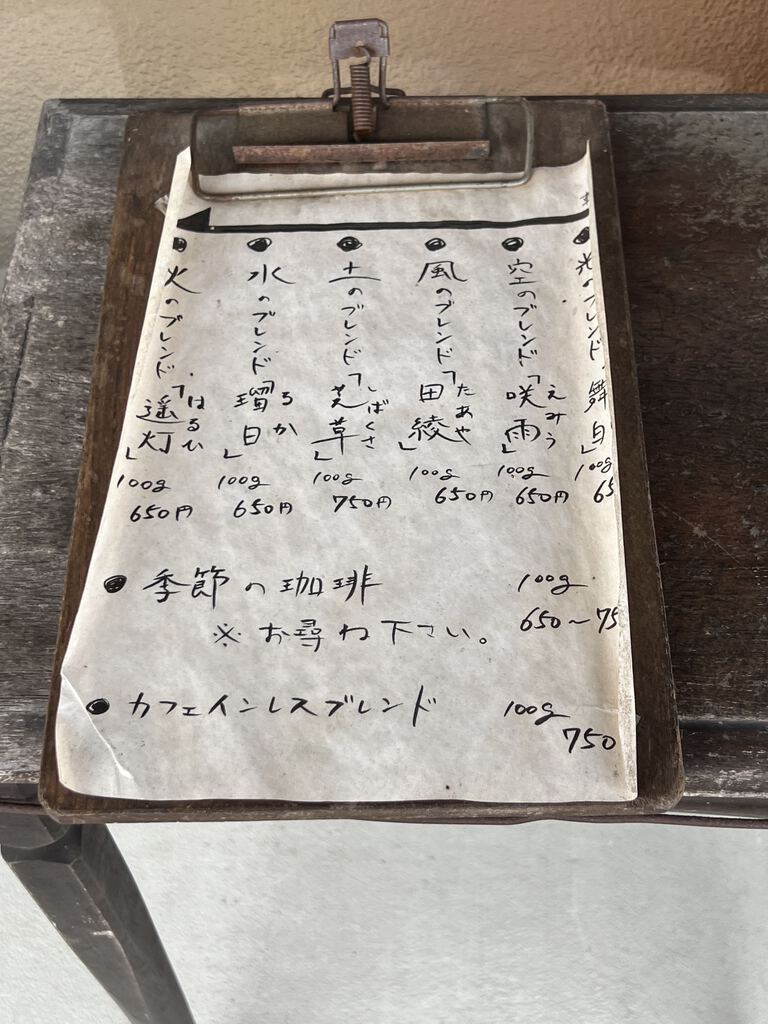 光のブレンド「舞白」
100g
65
空のブレンド「咲雨」
えみう
100g
650円
風のブレンド「田綾」
たあや
100g
650円
土のブレンド「芝草」
しばくさ
100g
750円
水のブレンド「瑠日」
るか
100g
650円
火のブレンド「遥灯」
はるひ
100g
650円
● 季節の珈琲 100g
※お尋ね下さい。 650〜75
● カフェインレスブレンド 100g
750